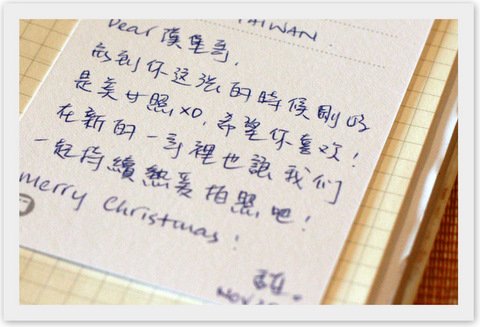 TAIWAN
Dear 漢堡哥,
命到你这張的時候剛好
是美女照XD,希望你喜欢!
在新的一年裡也讓我们
一起持續熱爱拍照吧!
Merry Christmas!
NOV